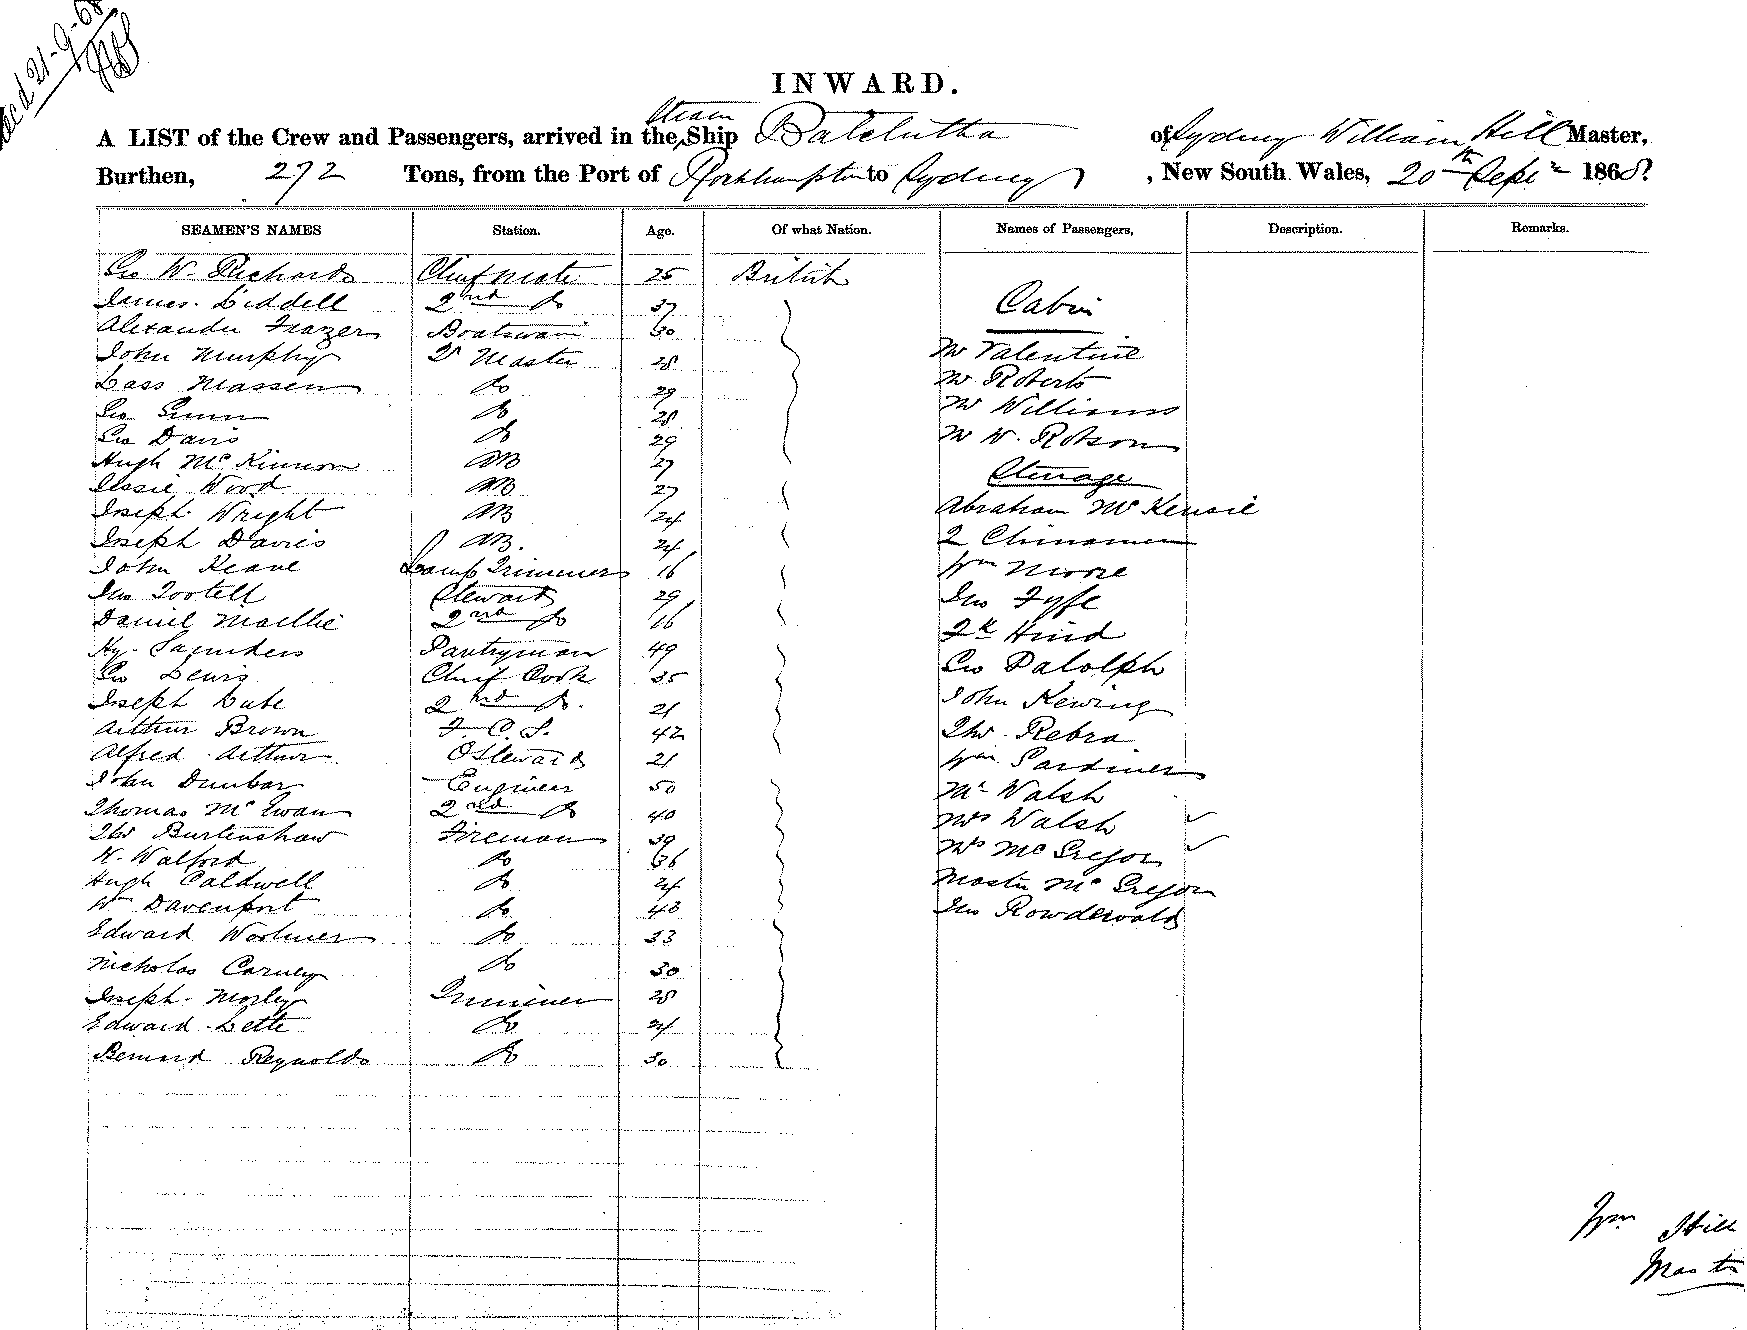 Rec d 21-9-68
INWARD.
Steam
A LIST of the Crew and Passengers, arrived in the Ship Balclutha of Sydney William Hill Master,
Burthen, 272 Tons, from the Port of Rockhampton to Sydney , New South Wales, 20th Sept 1868
SEAMEN'S NAMES Station. Age. Of what Nation. Names of Passengers, Description. Remarks.
Geo W. Richards Chief Mate 25 British
James Liddell 2nd Do 37 Cabin
Alexander Frazer Boatswain 30
John Murphy Qr Master 28 Mr Valentine
Lass Massen Do 29 Mr Roberts
Geo Gunn Do 28 Mr Williams
Geo Davis Do 29 Mr W. Robson
Hugh McKinnon AB 27 Steerage
Jessie Wood AB 27
Joseph Wright AB 24 Abraham McKensie
Joseph Davies AB. 24 2 Chinamen
John Keave Lamp Trimmer 16 Wm Moore
Jno Tootell Steward 29 Jno Fyfe
Daniel Maillie 2nd Do 16 Hind
Hy. Saunders Pantryman 49 Geo Dalolph
Geo Lewis Chief Cook 35
Joseph Lube 2nd Do. 21 John Kewing
Arthur Brown F. C. S. 42 Thos Rebra
Alfred Arthur O Steward 21 Wm Gardiner
John Dunbar Engineer 50 Mr Walsh
Thomas McEwan 2nd Do 40 Mrs Walsh
Thos Burtenshaw Fireman 39 Mrs McGregor
W. Walford Do 36
Hugh Caldwell Do 24 Master McGregor
Wm Davenport Do 43 Jno Rowdewald
Edward Woolmer Do 33
Nicholas Carney Do 30
Joseph Morley Trimmer 28
Edward Lette Do 24
Bernard Reynolds Do 30
Wm Hill
Master